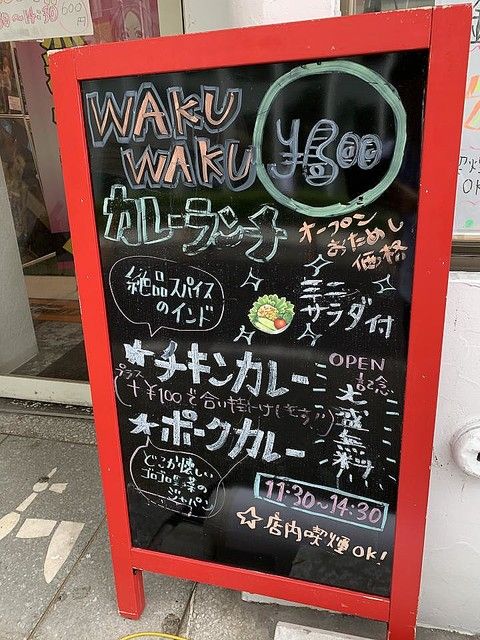 〜14:30 600円
WAKU
WAKU
¥800
カレーランチ
オープン
おためし
価格
絶品スパイス
のインド
ミニ
サラダ付
★チキンカレー
プラス
(+¥100で合い掛けします♪)
★ポークカレー
OPEN
記念
大
盛
無
料
どこか懐しい
ゴロゴロ野菜の
ジャパン
11:30〜14:30
☆店内喫煙OK!
喫煙
OK